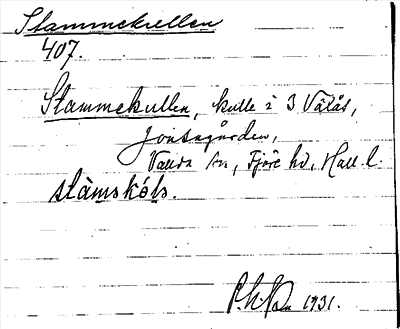 Stammekullen
407.
Stammekullen, kulle i 3 Vätås,
Jonsagården,
Vallda sn, Fjäre hd, Hall. l.
1931.